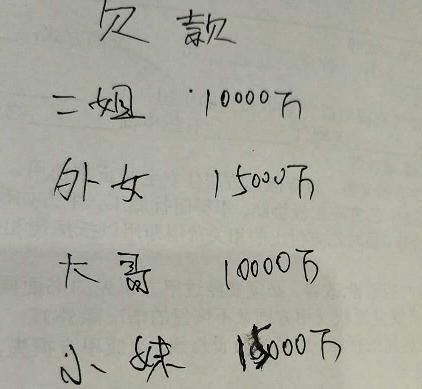 欠款
二姐 10000万
外女 15000万
大哥 10000万
小妹 15000万